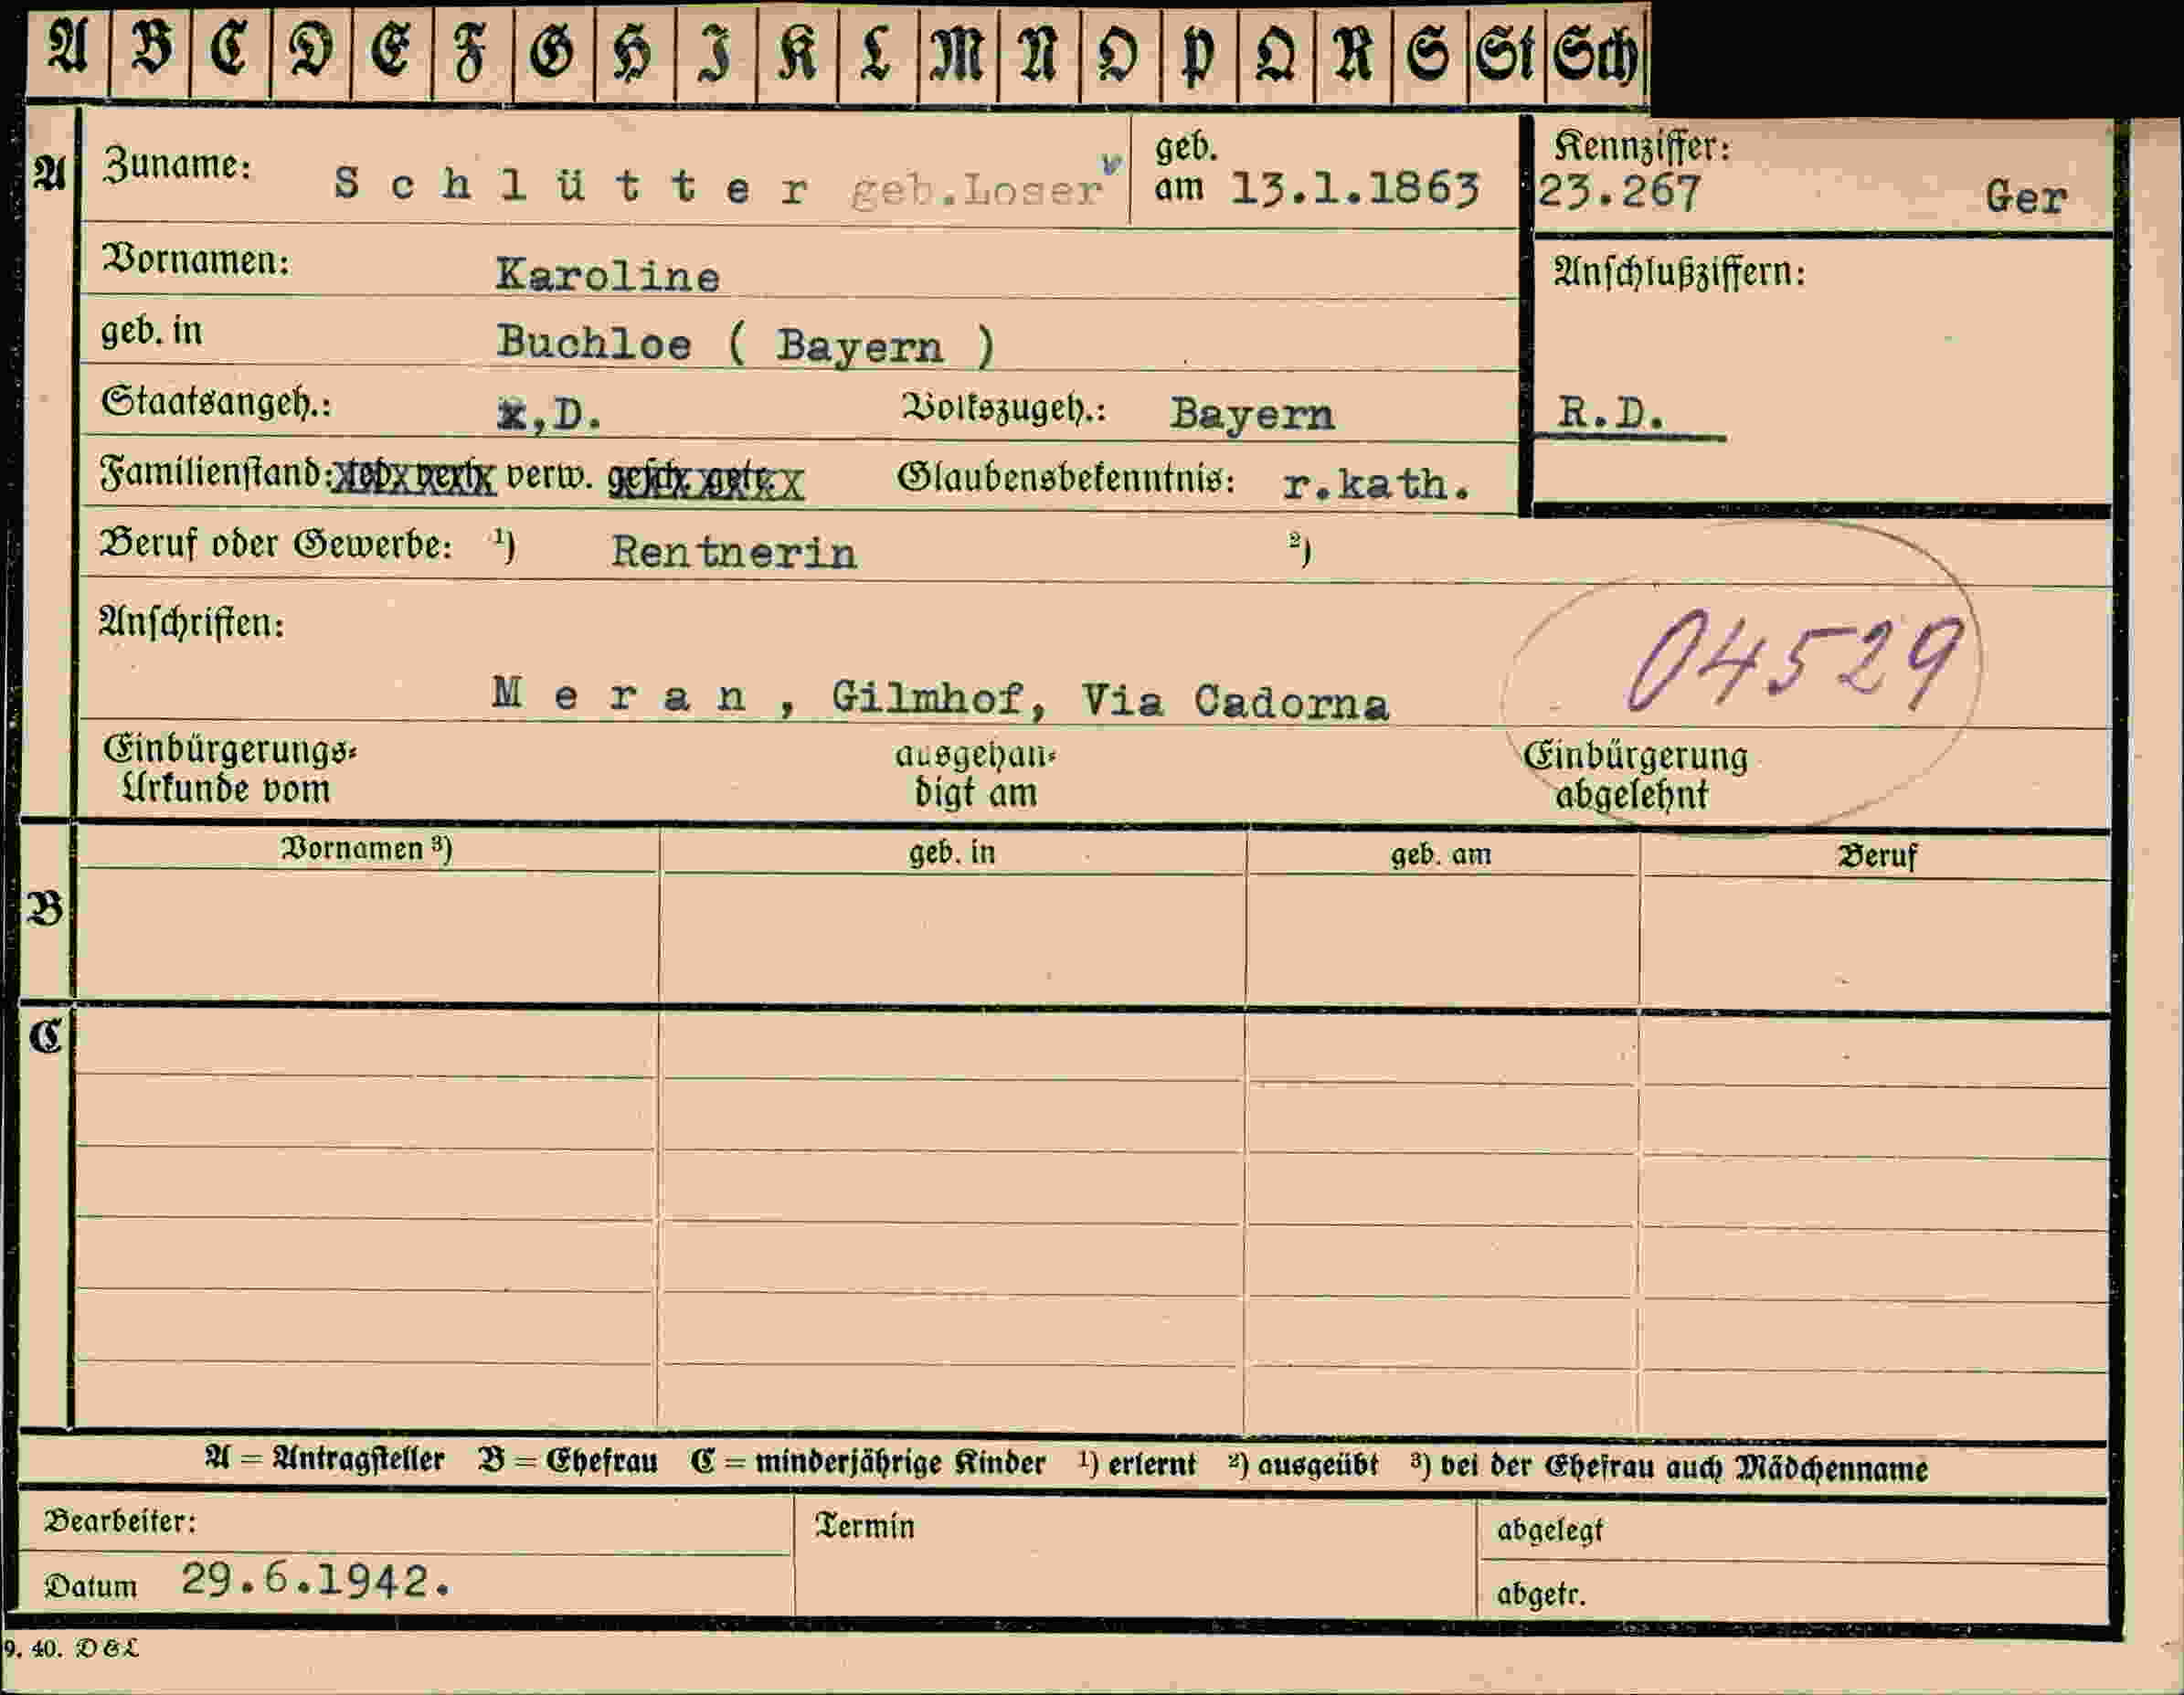 A B C D E F G H I K L M N O P Q R S St Sch
A Zuname: Schlütter geb.Loser geb. am 13.1.1863 Kennziffer: 23.267 Ger
Vornamen: Karoline Anschlußziffern:
geb. in Buchloe ( Bayern )
Staatsangeh.: x,D. Volkszugeh.: Bayern R.D.
Familienstand: verw. Glaubensbekenntnis: r.kath.
Beruf oder Gewerbe: ¹) Rentnerin ²)
Anschriften: 04529
Meran, Gilmhof, Via Cadorna
Einbürgerungs- ausgehän- Einbürgerung
Urkunde vom digt am abgelehnt
Vornamen ³) geb. in geb. am Beruf
B
C
A = Antragsteller B = Ehefrau C = minderjährige Kinder ¹) erlernt ²) ausgeübt ³) bei der Ehefrau auch Mädchenname
Bearbeiter: Termin abgelegt
Datum 29.6.1942. abgetr.
9. 40. D&L